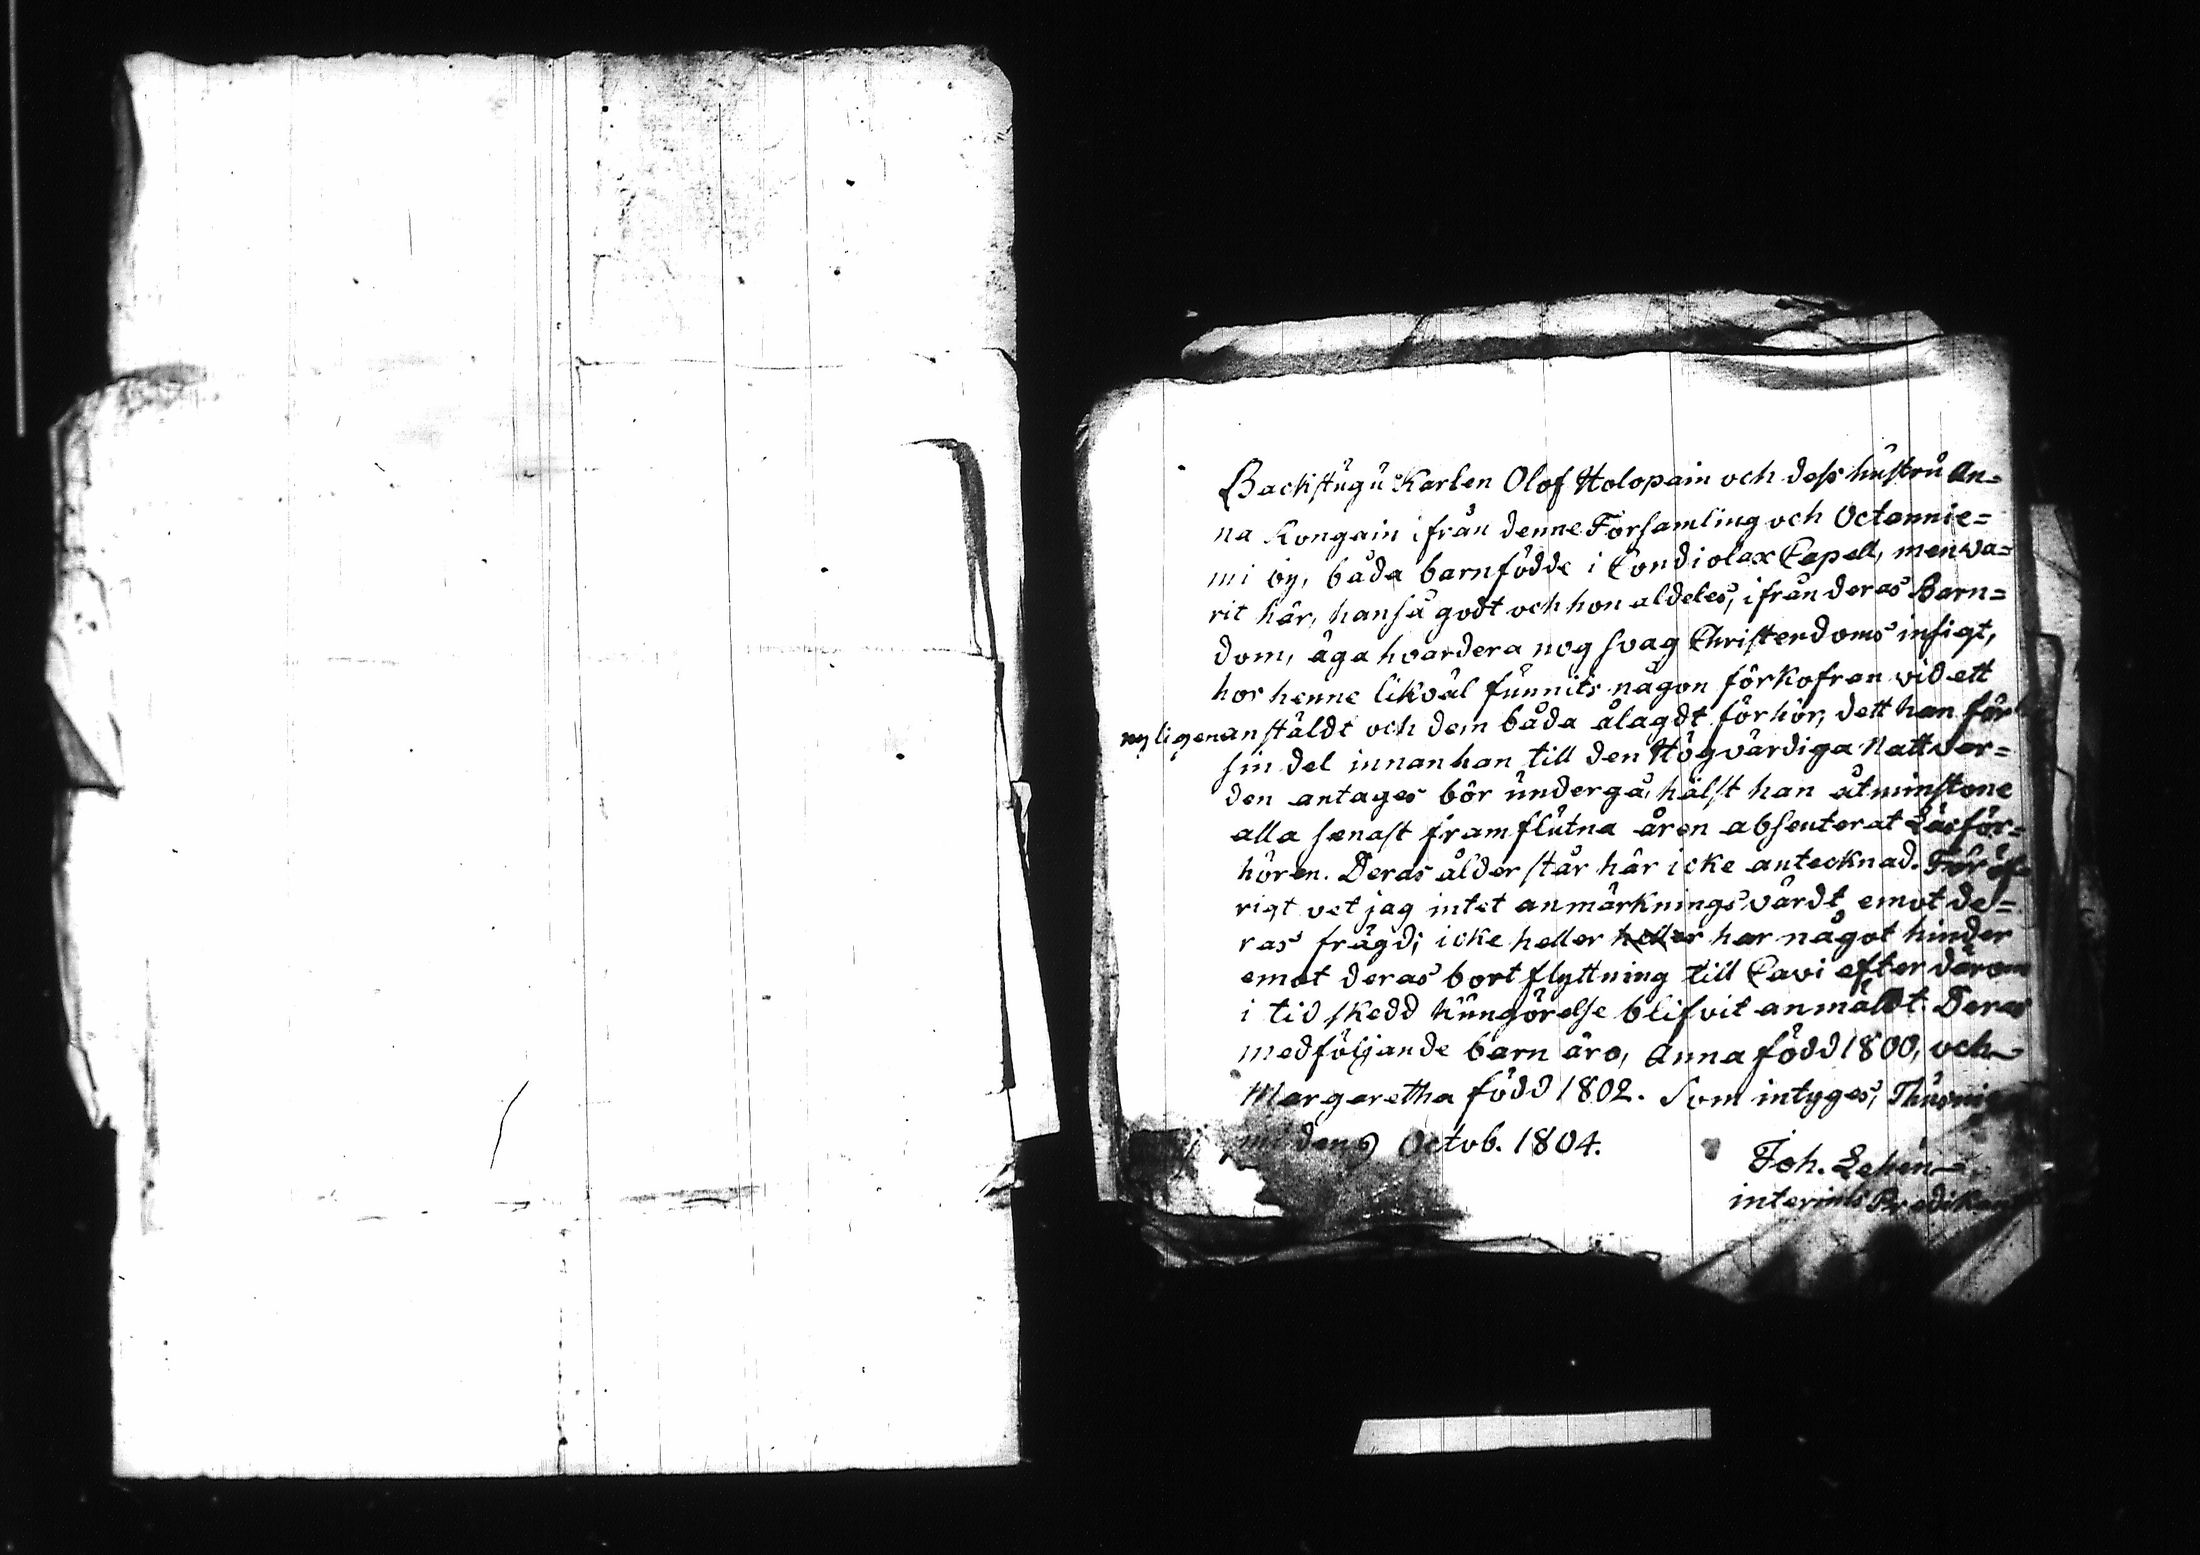 Backstugu Karlen Olof Holopain och dess hustru An=
na Kongain ifrån denne Forsamling och Octannie=
mi by, båda barnfödde i Condiolax Capell, men wa=
rit här, han så godt och hon aldeles, ifrån deras Barn=
dom, äga hvardera nog svag Christendoms insigt,
hos henne likväl funnits någon förkofran vid ett
nyligen anstäldt och dem båda ålagdt förhör, dett han för
sin del innan han till den Högvärdiga Nattvar=
den antages bör undergå, hälst han åtminstone
alla senast framflutna åren absenterat Läsför=
hören. Deras ålder står här icke antecknad. För öf=
rigt vet jag intet anmärkningsvärdt emot de=
ras frägd; icke heller heller har något hinder
emot deras bortflyttning till Cavi efter därom
i tid skedd kungörelse blifvit anmäldt. Deras
medföljande barn äro, Anna född 1800, och
Margaretha född 1802. Som intyges, Thusnie
mi den 9 Octob. 1804.
Joh.
interims Predikan